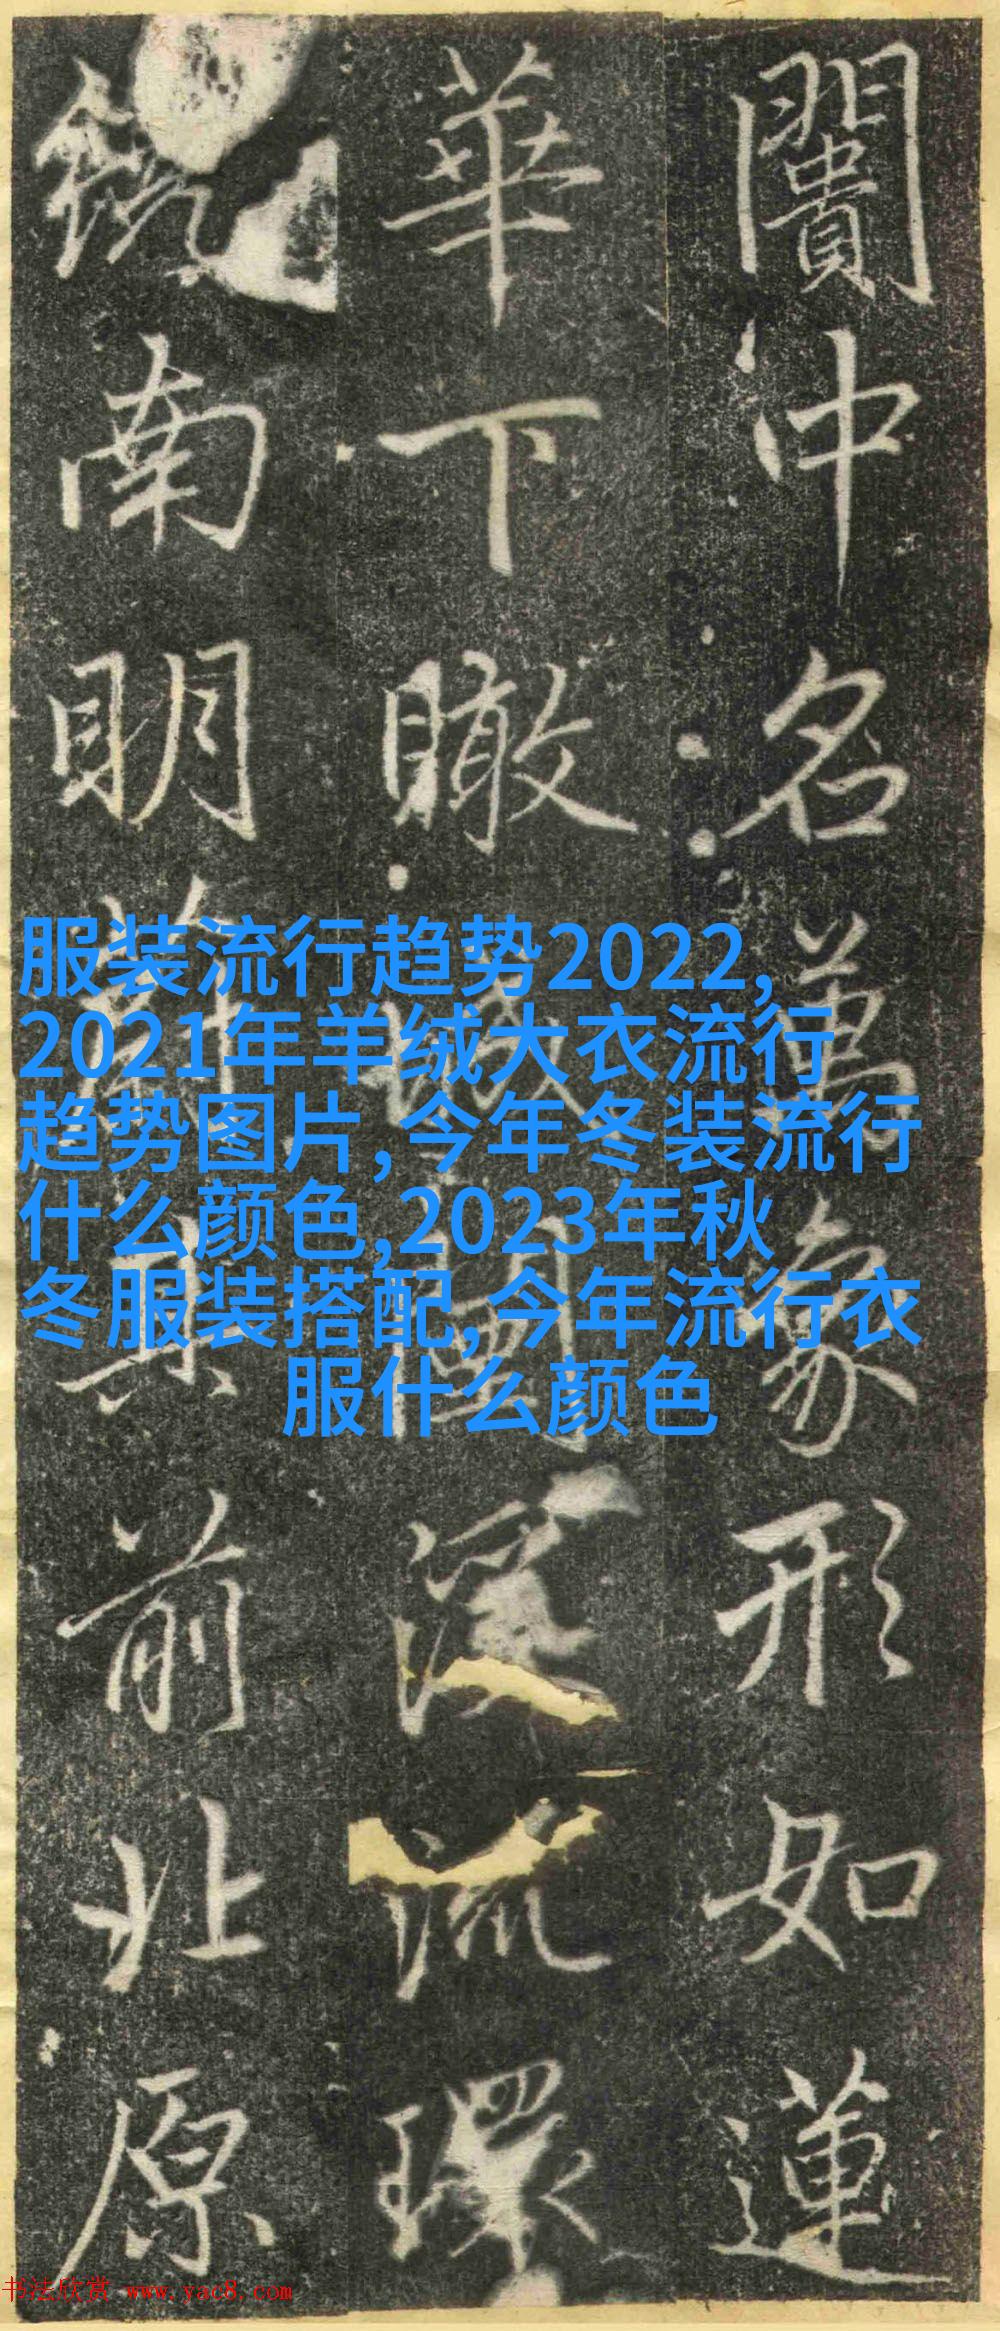 闠冲名萬象形如蓮
華下瞰城深流環
南明其前北原
服装流行趋势2022,
2021年羊绒大衣流行
趋势图片,今年冬装流行
什么颜色,2023年秋
冬服装搭配,今年流行衣
服什么颜色
书法欣赏 www.yac8.com